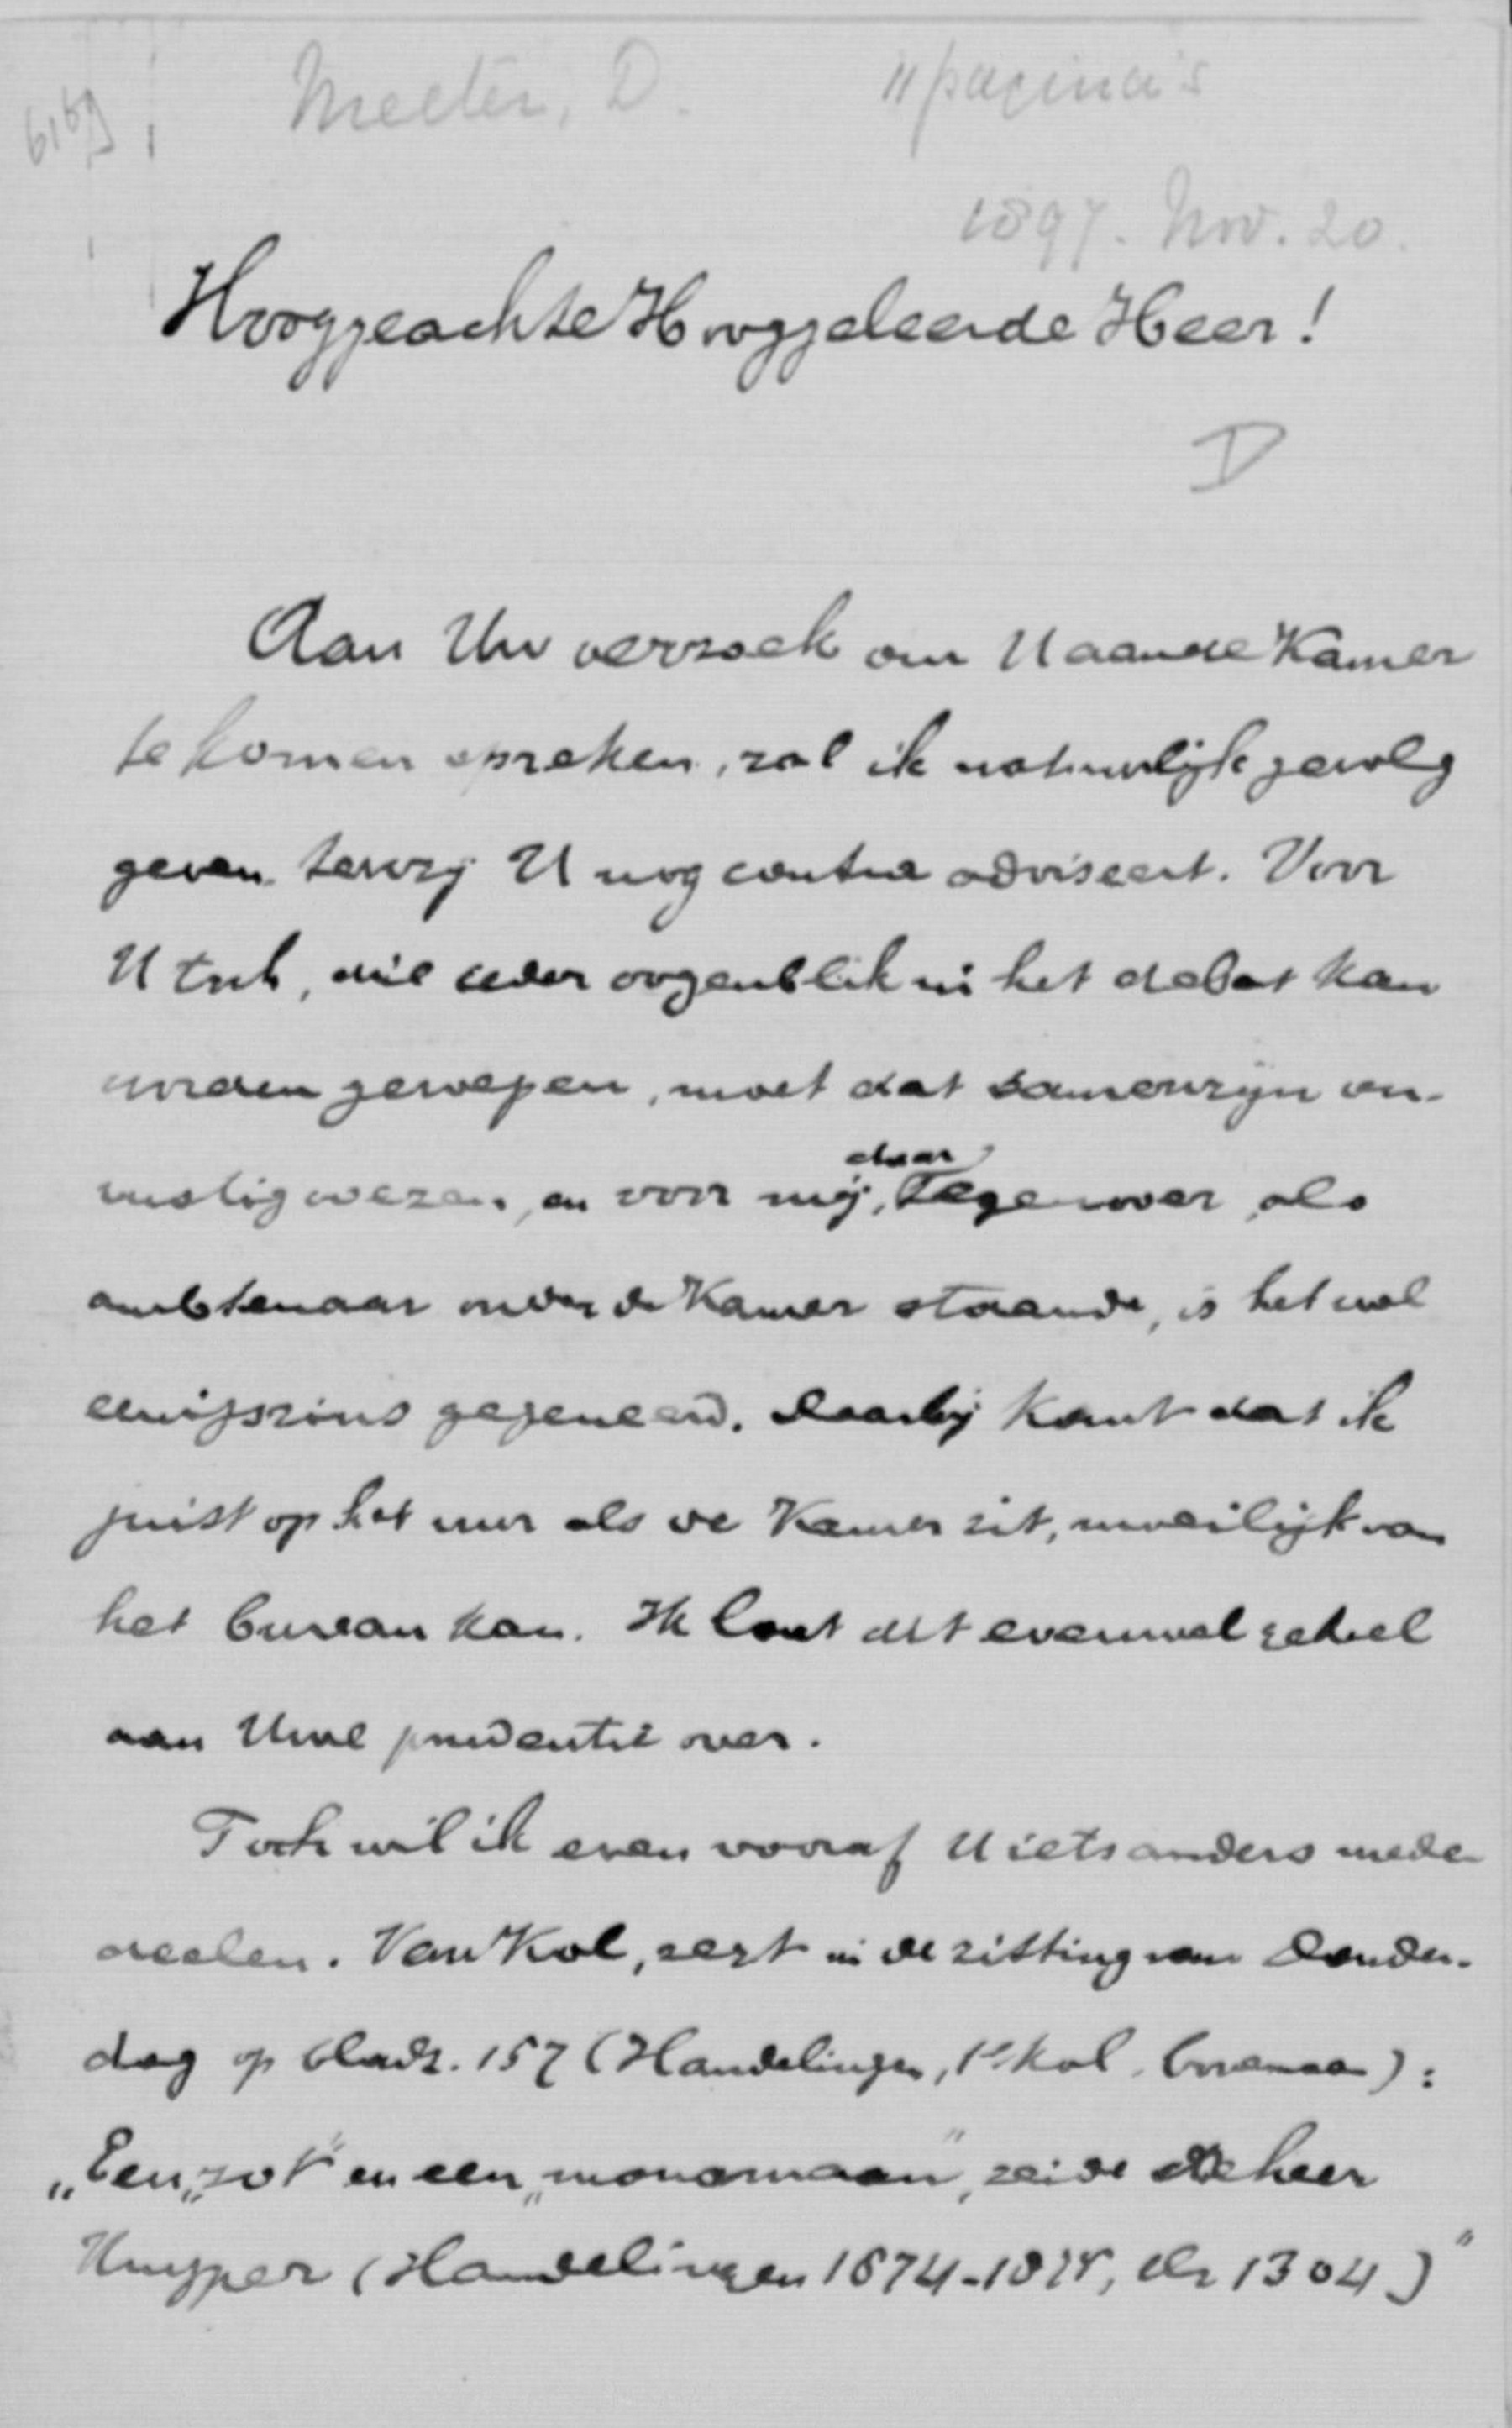 6169
Meeter, D. 11 pagina's
1897. Nov. 20.
Hooggeachte Hooggeleerde Heer!
D
Aan Uw verzoek om U aan de Kamer
te komen spreken, zal ik natuurlijk gevolg
geven tenzij U nog contra adviseert. Voor
U toch, die ieder oogenblik in het debat kan
worden geroepen, moet dat samenzijn on-
rustig wezen, en voor mij, daar
tegenover als
ambtenaar onder de Kamer staande, is het wel
eenigszins gegeneerd. Daarbij komt dat ik
juist op het uur als de Kamer zit, moeilijk van
het bureau kan. Ik laat dit evenwel geheel
aan Uwe prudentie over.
Toch wil ik even vooraf U iets anders mede-
deelen. Van Kol, zegt in de zitting van Donder-
dag op bladz. 157 (Handelingen, 1e kol. bovenaan):
„Een „zot" en een „monomaan", zeide de heer
Kuyper (Handelingen 1874-1875, blz 1304)"